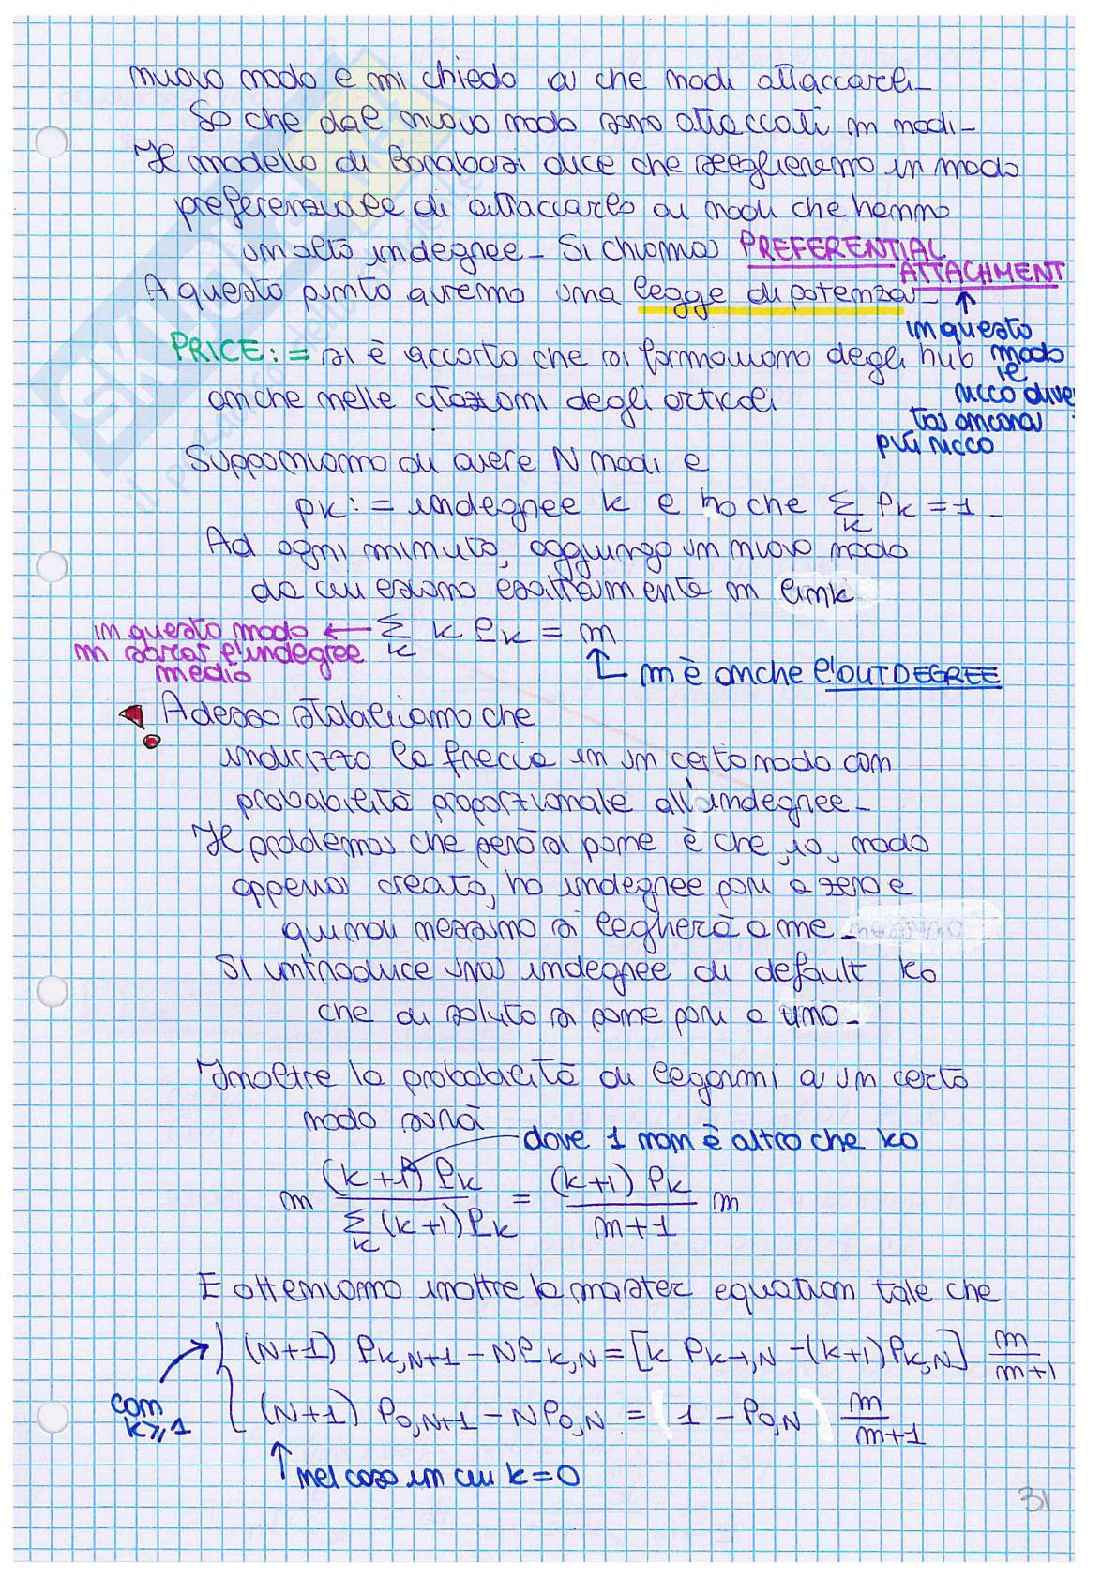 nuovo nodo e mi chiedo a che nodi attaccarli-
So che dal nuovo nodo sono attaccati m nodi-
Il modello di Barabasi dice che sceglieremo in modo
preferenziale di attaccarlo ai nodi che hanno
un alto indegree- Si chiama PREFERENTIAL
ATTACHMENT
A questo punto avremo una legge di potenza-
in questo
modo
il
ricco dive
ta ancora
più ricco
PRICE: = si è accorto che si formavano degli hub
anche nelle citazioni degli articoli
Supponiamo di avere N nodi e
pk: = indegree k e ho che Σ Pk = 1 -
k
Ad ogni minuto, aggiungo un nuovo nodo
da cui escono esattamente m link
in questo modo ← Σ k Pk = m
k
m sarà l'indegree
medio
m è anche l'OUTDEGREE
Adesso stabiliamo che
indirizzo la freccia in un certo nodo con
probabilità proporzionale all'indegree-
Il problema che però si pone è che, io, nodo
appena creato, ho indegree pari a zero e
quindi nessuno si legherà a me-
Si introduce una indegree di default ko
che di solito si pone pari a uno-
Inoltre la probabilità di legarmi a un certo
nodo sarà
dove 1 non è altro che ko
m (k+1) Pk / Σ (k+1) Pk = (k+1) Pk / m+1 m
k
E otteniamo inoltre la master equation tale che
(N+1) Pk,N+1 - NPk,N = [k Pk-1,N - (k+1) Pk,N] m / m+1
con
k≥1
(N+1) P0,N+1 - NP0,N = 1 - P0,N m / m+1
↑ nel caso in cui k=0
31